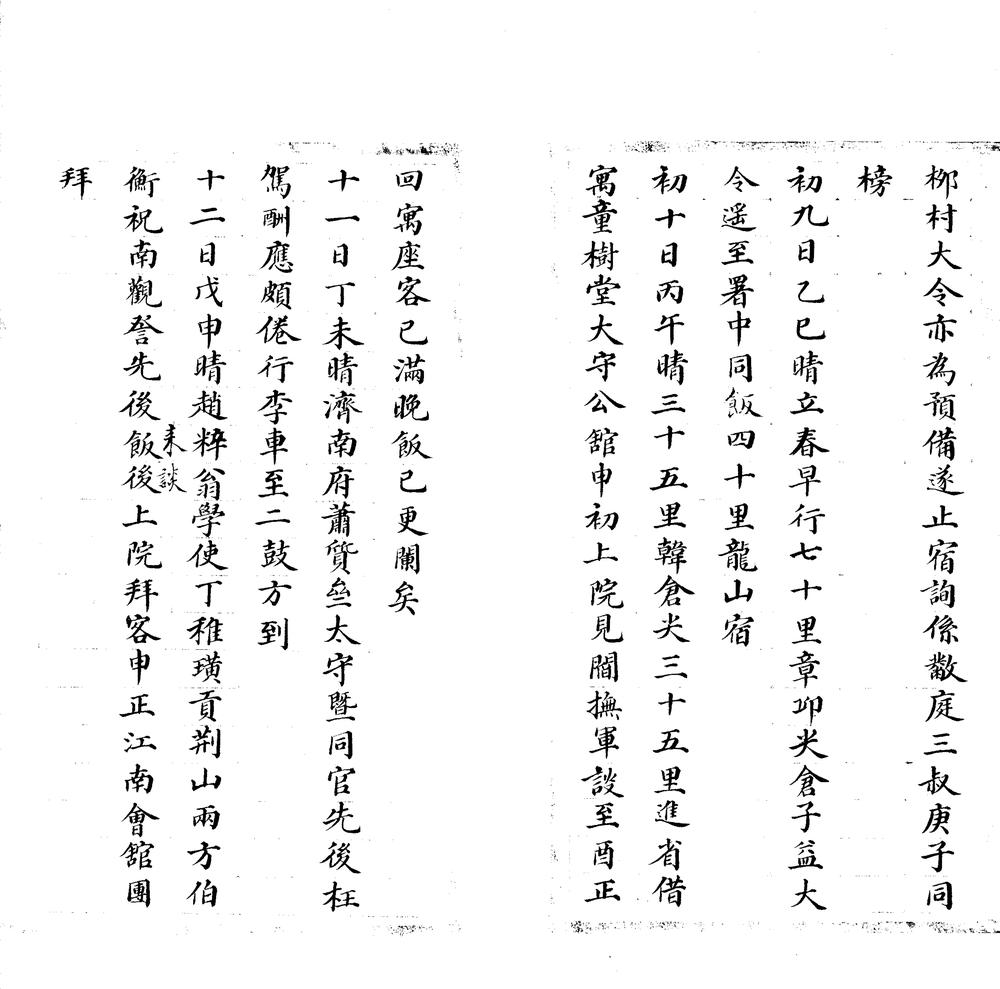 栁村大令亦為預備遂止宿詢係黻庭三叔庚子同
榜
初九日乙巳晴立春早行七十里章邱尖倉子益大
令遥至署中同飯四十里龍山宿
初十日丙午晴三十五里韓倉尖三十五里進省借
寓童樹堂大守公舘申初上院見閻撫軍談至酉正
回寓座客已滿晚飯已更闌矣
十一日丁未晴濟南府蕭質叁太守暨同官先後枉
駕酬應頗倦行李車至二鼓方到
十二日戊申晴趙粹翁學使丁稚璜貢荆山兩方伯
來談
衡祝南觀詧先後飯後上院拜客申正江南會舘團
拜